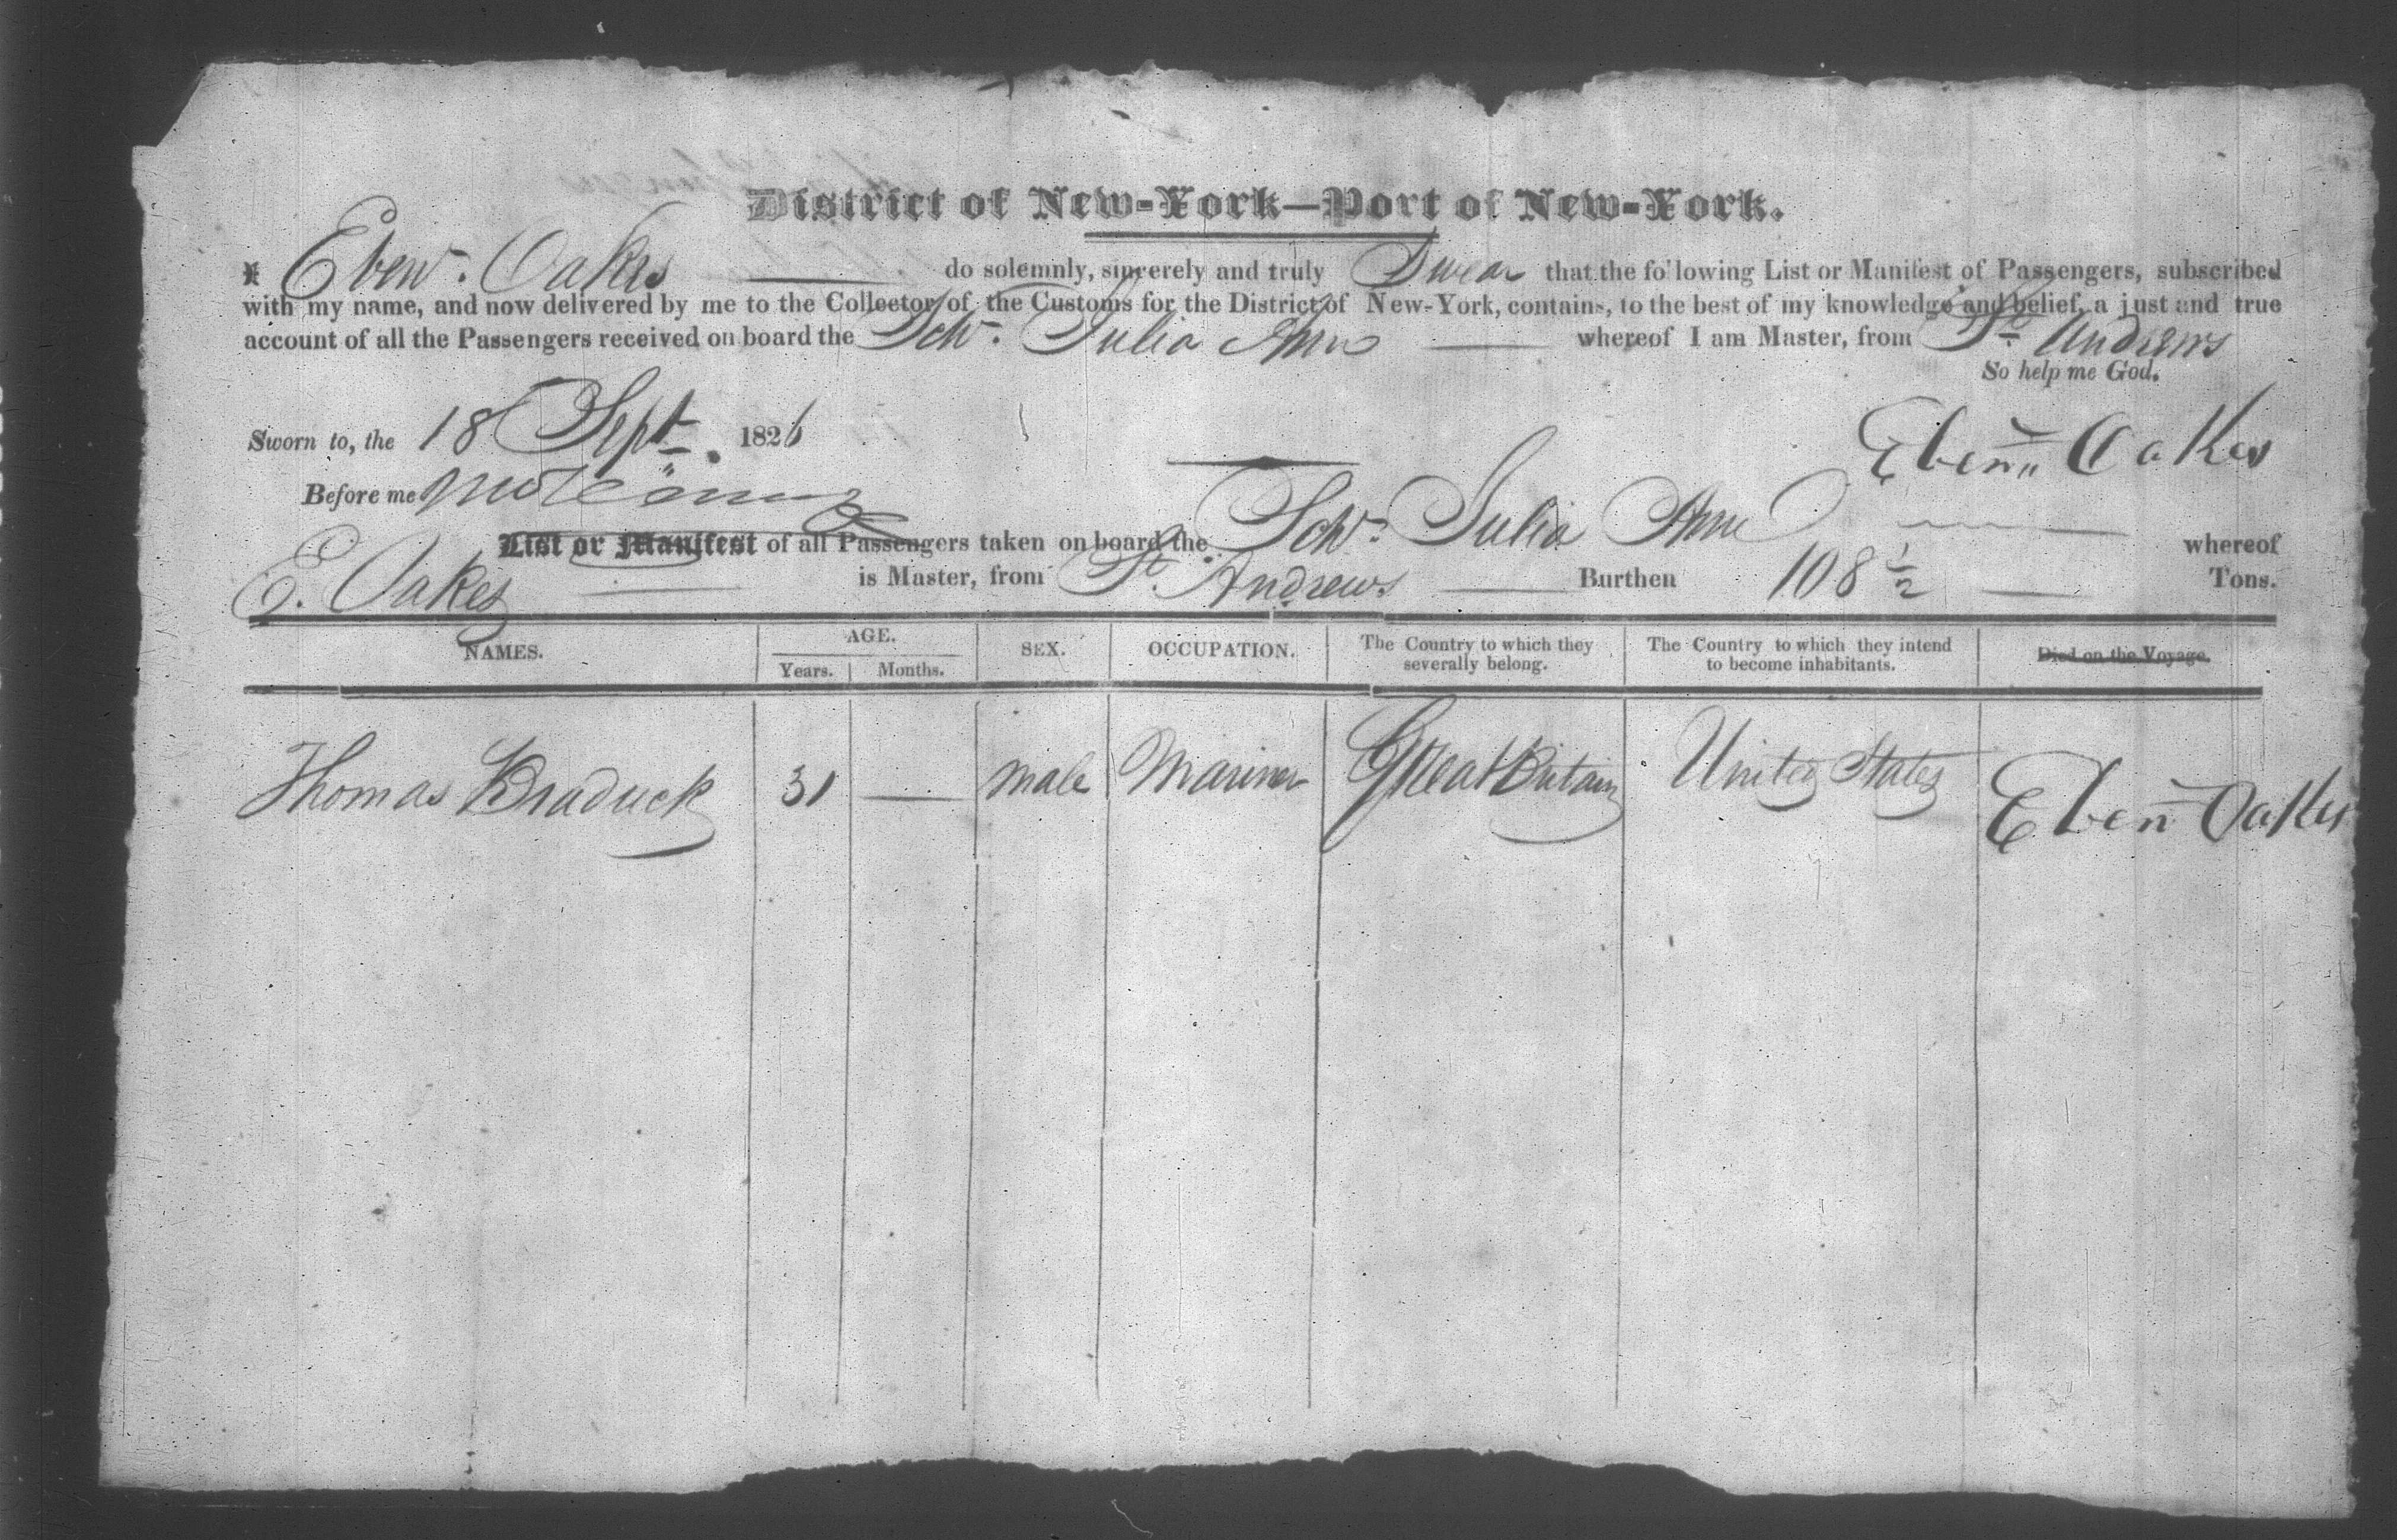 District of New-York—Port of New-York.
I Eben. Oakes do solemnly, sincerely and truly Swear that the following List or Manifest of Passengers, subscribed
with my name, and now delivered by me to the Collector of the Customs for the District of New-York, contains, to the best of my knowledge and belief, a just and true
account of all the Passengers received on board the Schr. Julia Ann whereof I am Master, from St. Andrews
So help me God.
Sworn to, the 18 Sept. 1826
Ebenr Oakes
Before me
List or Manifest of all Passengers taken on board the Schr. Julia Ann whereof
E. Oakes is Master, from St. Andrews Burthen 108 1/2 Tons.
NAMES. AGE. SEX. OCCUPATION. The Country to which they severally belong. The Country to which they intend to become inhabitants. Died on the Voyage.
Years. Months.
Thomas Braduck 31 — male Mariner Great Britain United States Ebenr Oakes